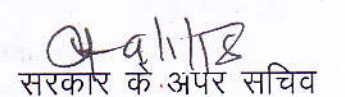 9/1/18
सरकार के अपर सचिव